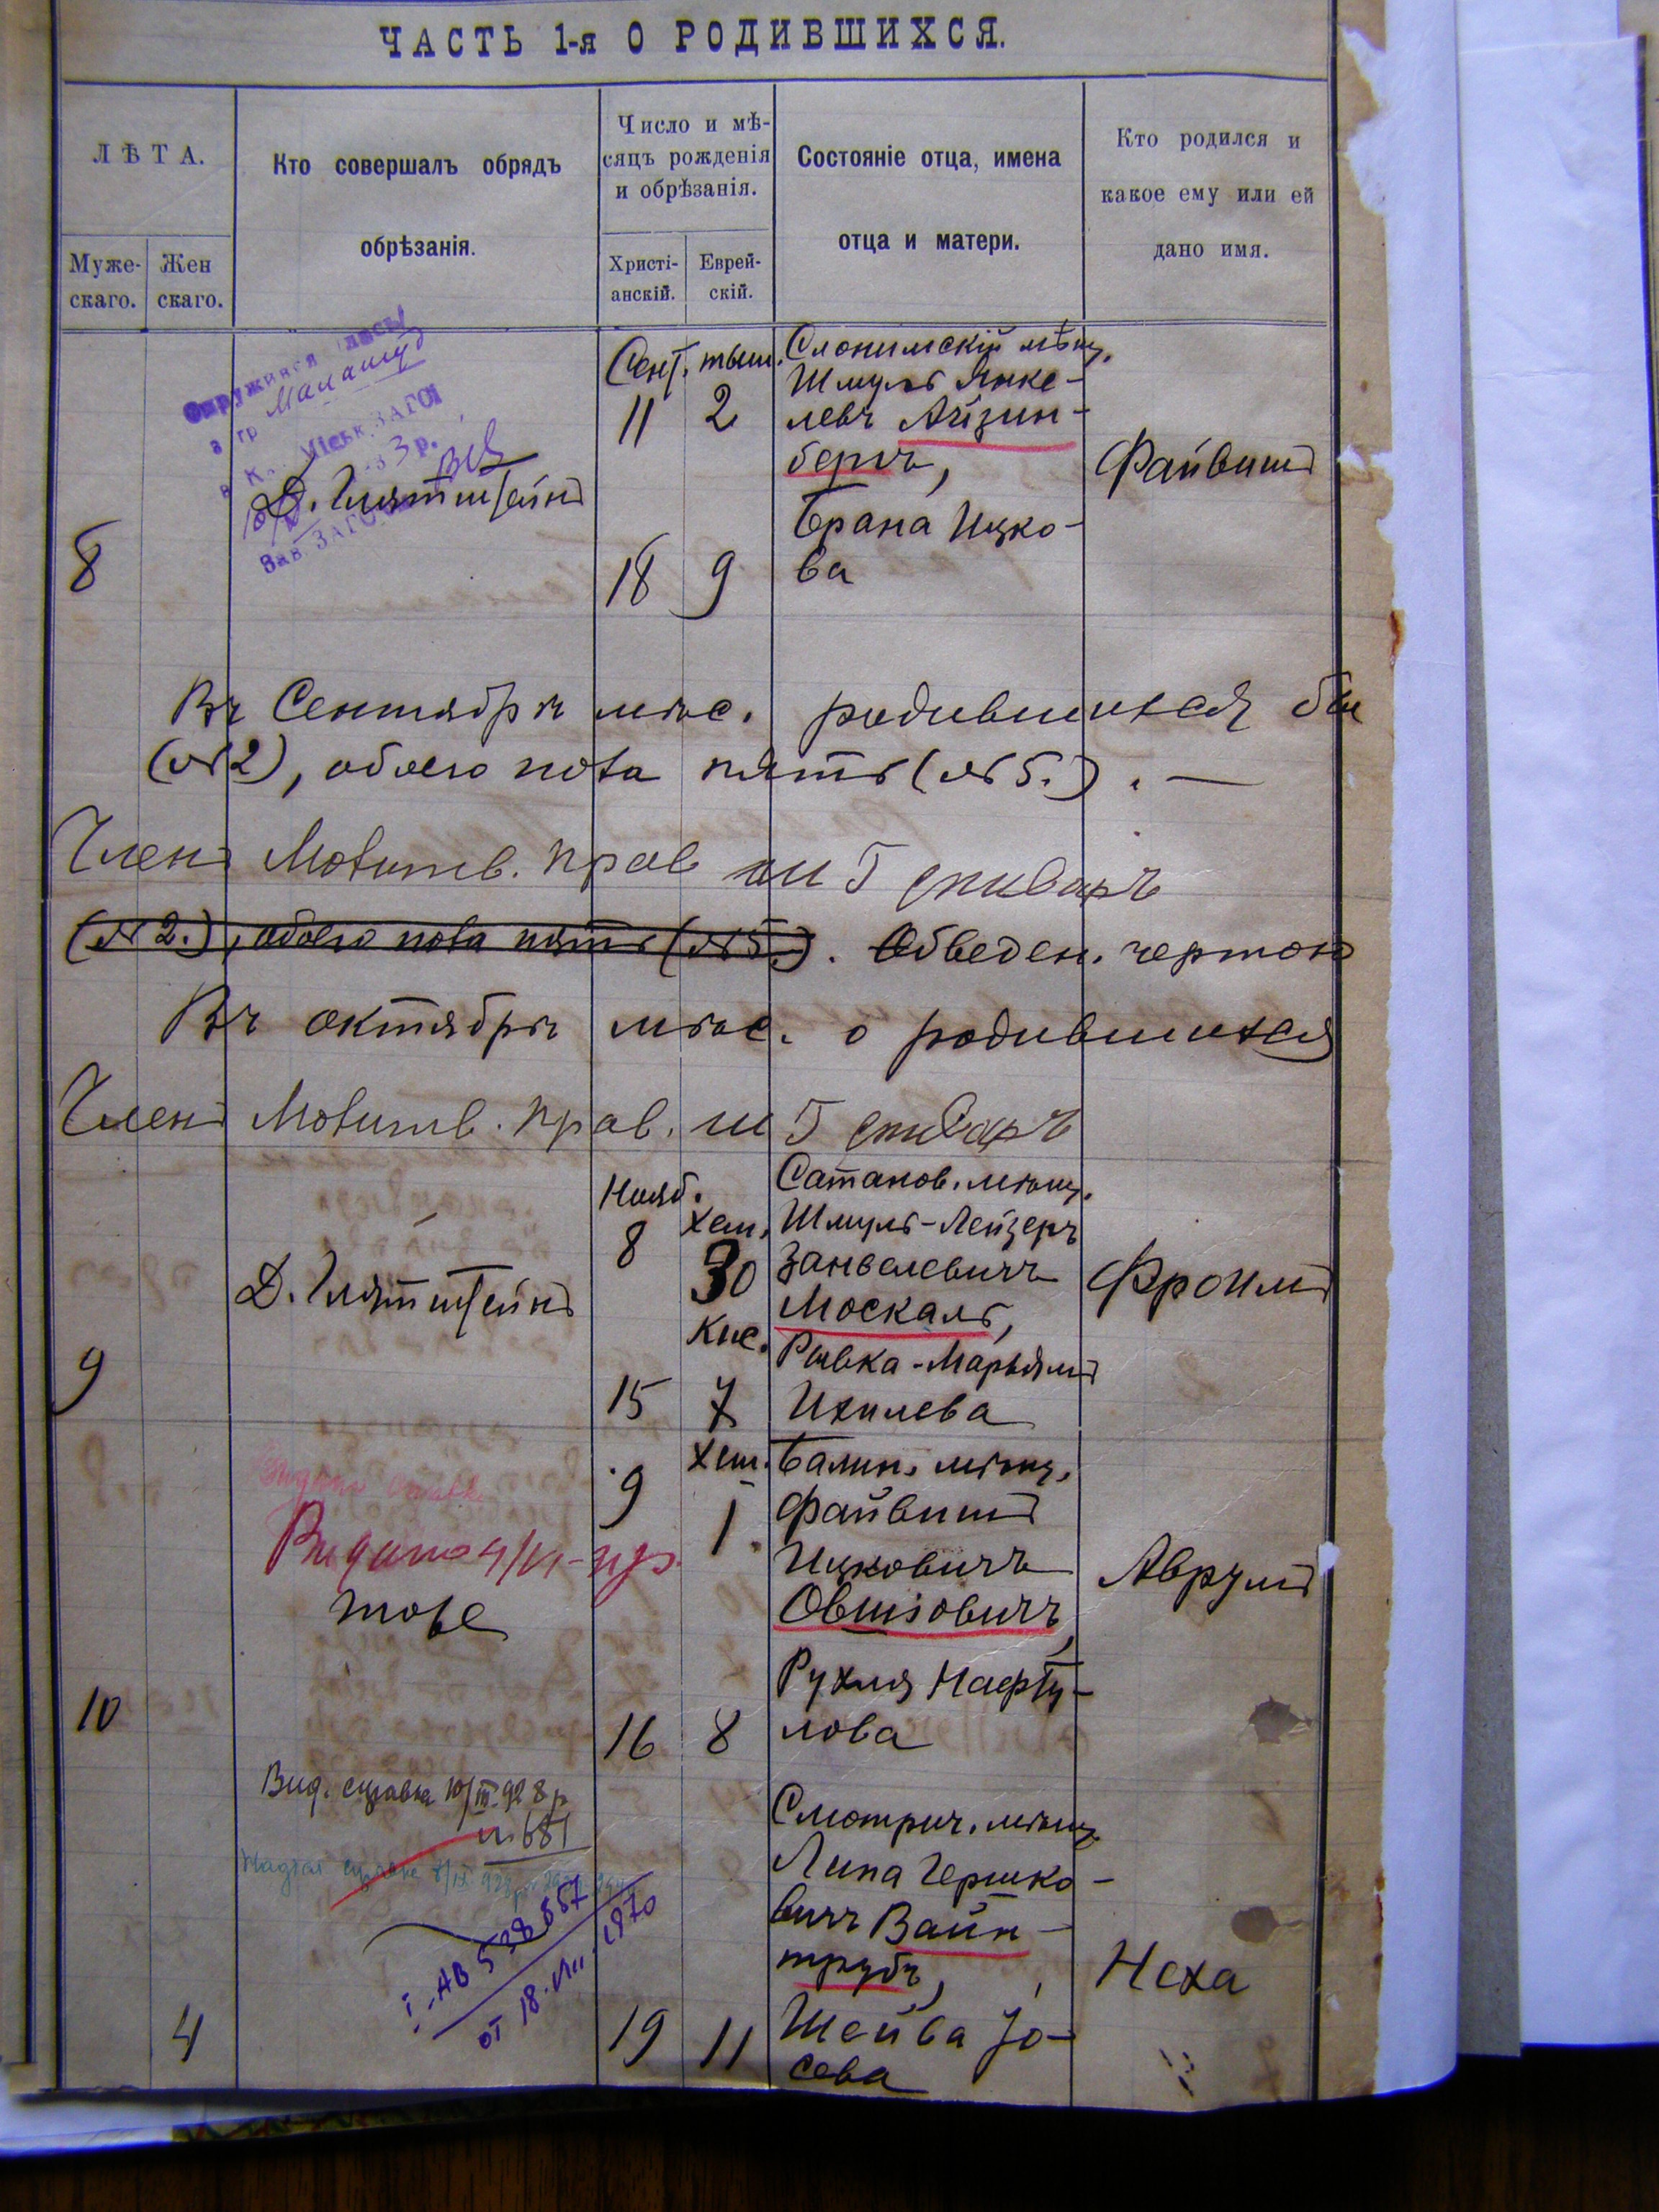 ЧАСТЬ 1-я О РОДИВШИХСЯ.
ЛѢТА.
Муже-
скаго.
Жен
скаго.
Кто совершалъ обрядъ
обрѣзанія.
Число и мѣ-
сяцъ рожденія
и обрѣзанія.
Христі-
анскій.
Еврей-
скій.
Состояніе отца, имена
отца и матери.
Кто родился и
какое ему или ей
дано имя.
8
Д. Глятштейнъ
Сент. тыш.
11 2
18 9
Слонимскій мѣщ.
Шмуль Янке-
левъ Айзин-
бергъ,
Брана Ицко-
ва
Файвишъ
Въ Сентябрѣ мѣс. родившихся бы
(№2), обоего пола пять (№5.). —
Членъ Молитв. прав
(№2.), обоего пола пять (№5.). Обведен. чертою
Въ октябрѣ мѣс. о родившихся
Членъ Молитв. прав.
9
Д. Глятштейнъ
Нояб.
8
Хеш.
30
Кис.
15 7
Сатанов. мѣщ.
Шмуль-Лейзеръ
Занвелевичъ
Москаль,
Рывка-Марьямъ
Ихилева
Фроимъ
10
тоже
9
Хеш.
1.
16 8
Балин. мѣщ.
Файвишъ
Ицковичъ
Овшіовичъ,
Рухля Нафту-
лова
Аврумъ
4
Вид. справка 10/III 928 р
№681
I-АВ 538557
от 18.VII.1970
19 11
Смотрич. мѣщ.
Липа Гершко-
вичъ Вайн-
трубъ,
Шейва Іо-
сева
Неха